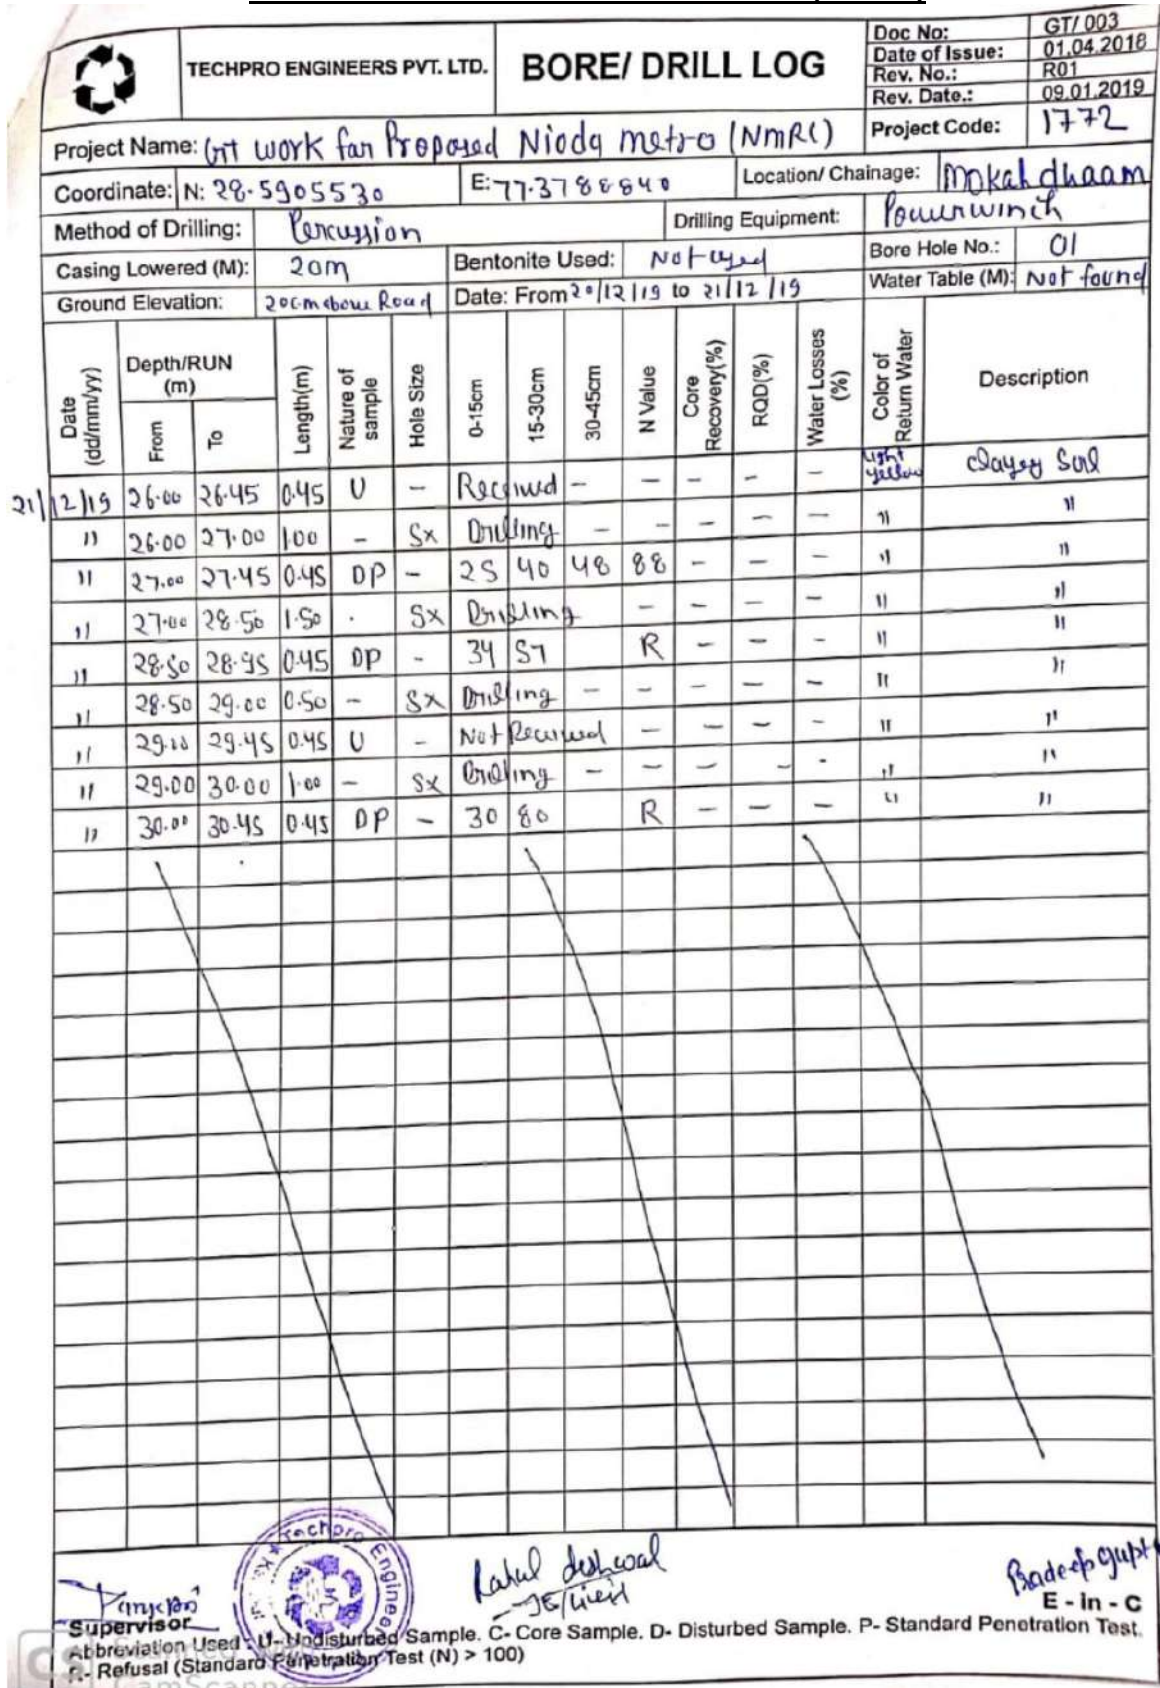 TECHPRO ENGINEERS PVT. LTD.
BORE/ DRILL LOG
Doc No: GT/ 003
Date of Issue: 01.04.2018
Rev. No.: R01
Rev. Date.: 09.01.2019
Project Name: GT work for Proposed Nioda metro (NMRC) Project Code: 1772
Coordinate: N: 28.5905530 E: 77.3788840 Location/ Chainage: Mokahdhaam
Method of Drilling: Percussion Drilling Equipment: Powerwinch
Casing Lowered (M): 20m Bentonite Used: Not used Bore Hole No.: 01
Ground Elevation: 20cm above Road Date: From 20/12/19 to 21/12/19 Water Table (M): Not found
Date (dd/mm/yy) Depth/RUN (m) From To Length(m) Nature of sample Hole Size 0-15cm 15-30cm 30-45cm N Value Core Recovery(%) RQD(%) Water Losses (%) Color of Return Water Description
21/12/19 26.00 26.45 0.45 U - Received - - - - - Light Yellow Clayey Soil
" 26.00 27.00 1.00 - Sx Drilling - - - - - " "
" 27.00 27.45 0.45 DP - 25 40 48 88 - - - " "
" 27.00 28.50 1.50 . Sx Drilling - - - - " "
" 28.50 28.95 0.45 DP - 34 57 R - - - " "
" 28.50 29.00 0.50 - Sx Drilling - - - - - " "
" 29.00 29.45 0.45 U - Not Received - - - - " "
" 29.00 30.00 1.00 - Sx Drilling - - - - - " "
" 30.00 30.45 0.45 DP - 30 80 R - - - " "
Techpro Engineers
Rahul deshwal
JE/Civil
Pradeep Gupta
Supervisor E - In - C
Abbreviation Used : U- Undisturbed Sample. C- Core Sample. D- Disturbed Sample. P- Standard Penetration Test.
R- Refusal (Standard Penetration Test (N) > 100)
CS CamScanner